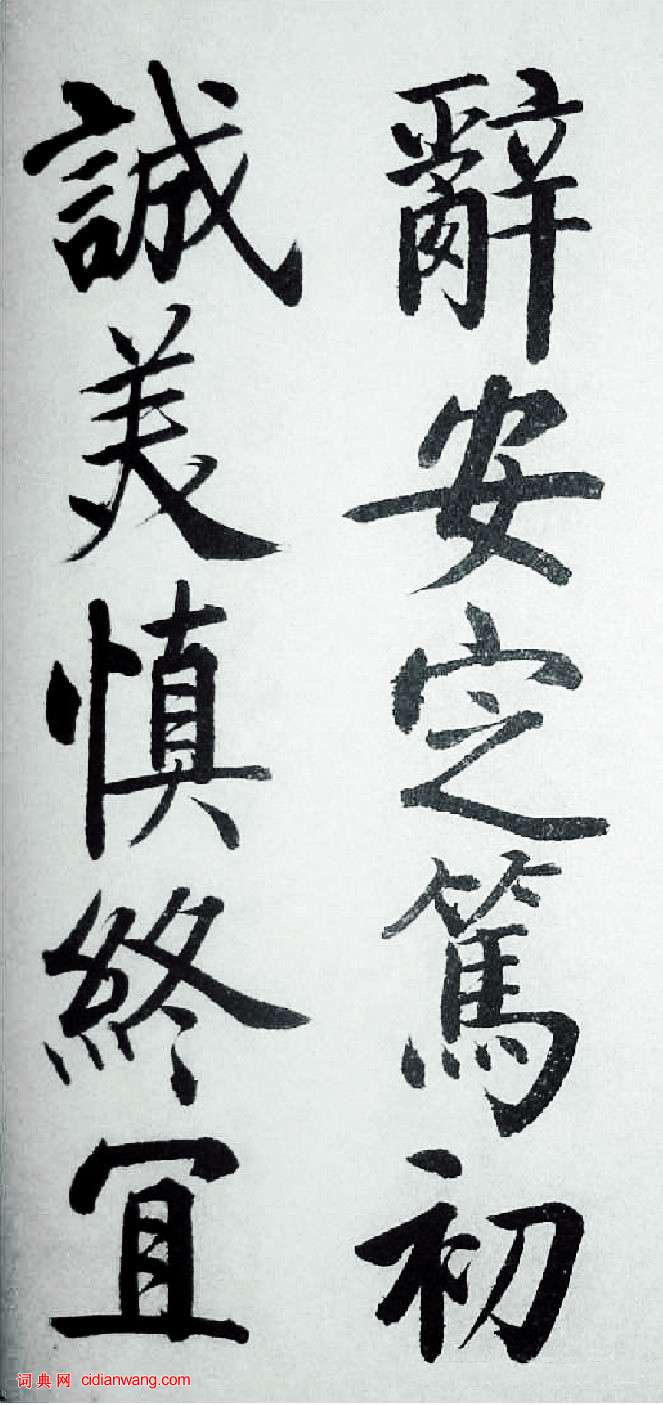 辭安定篤初
誠美慎終宜
词典网 cidianwang.com